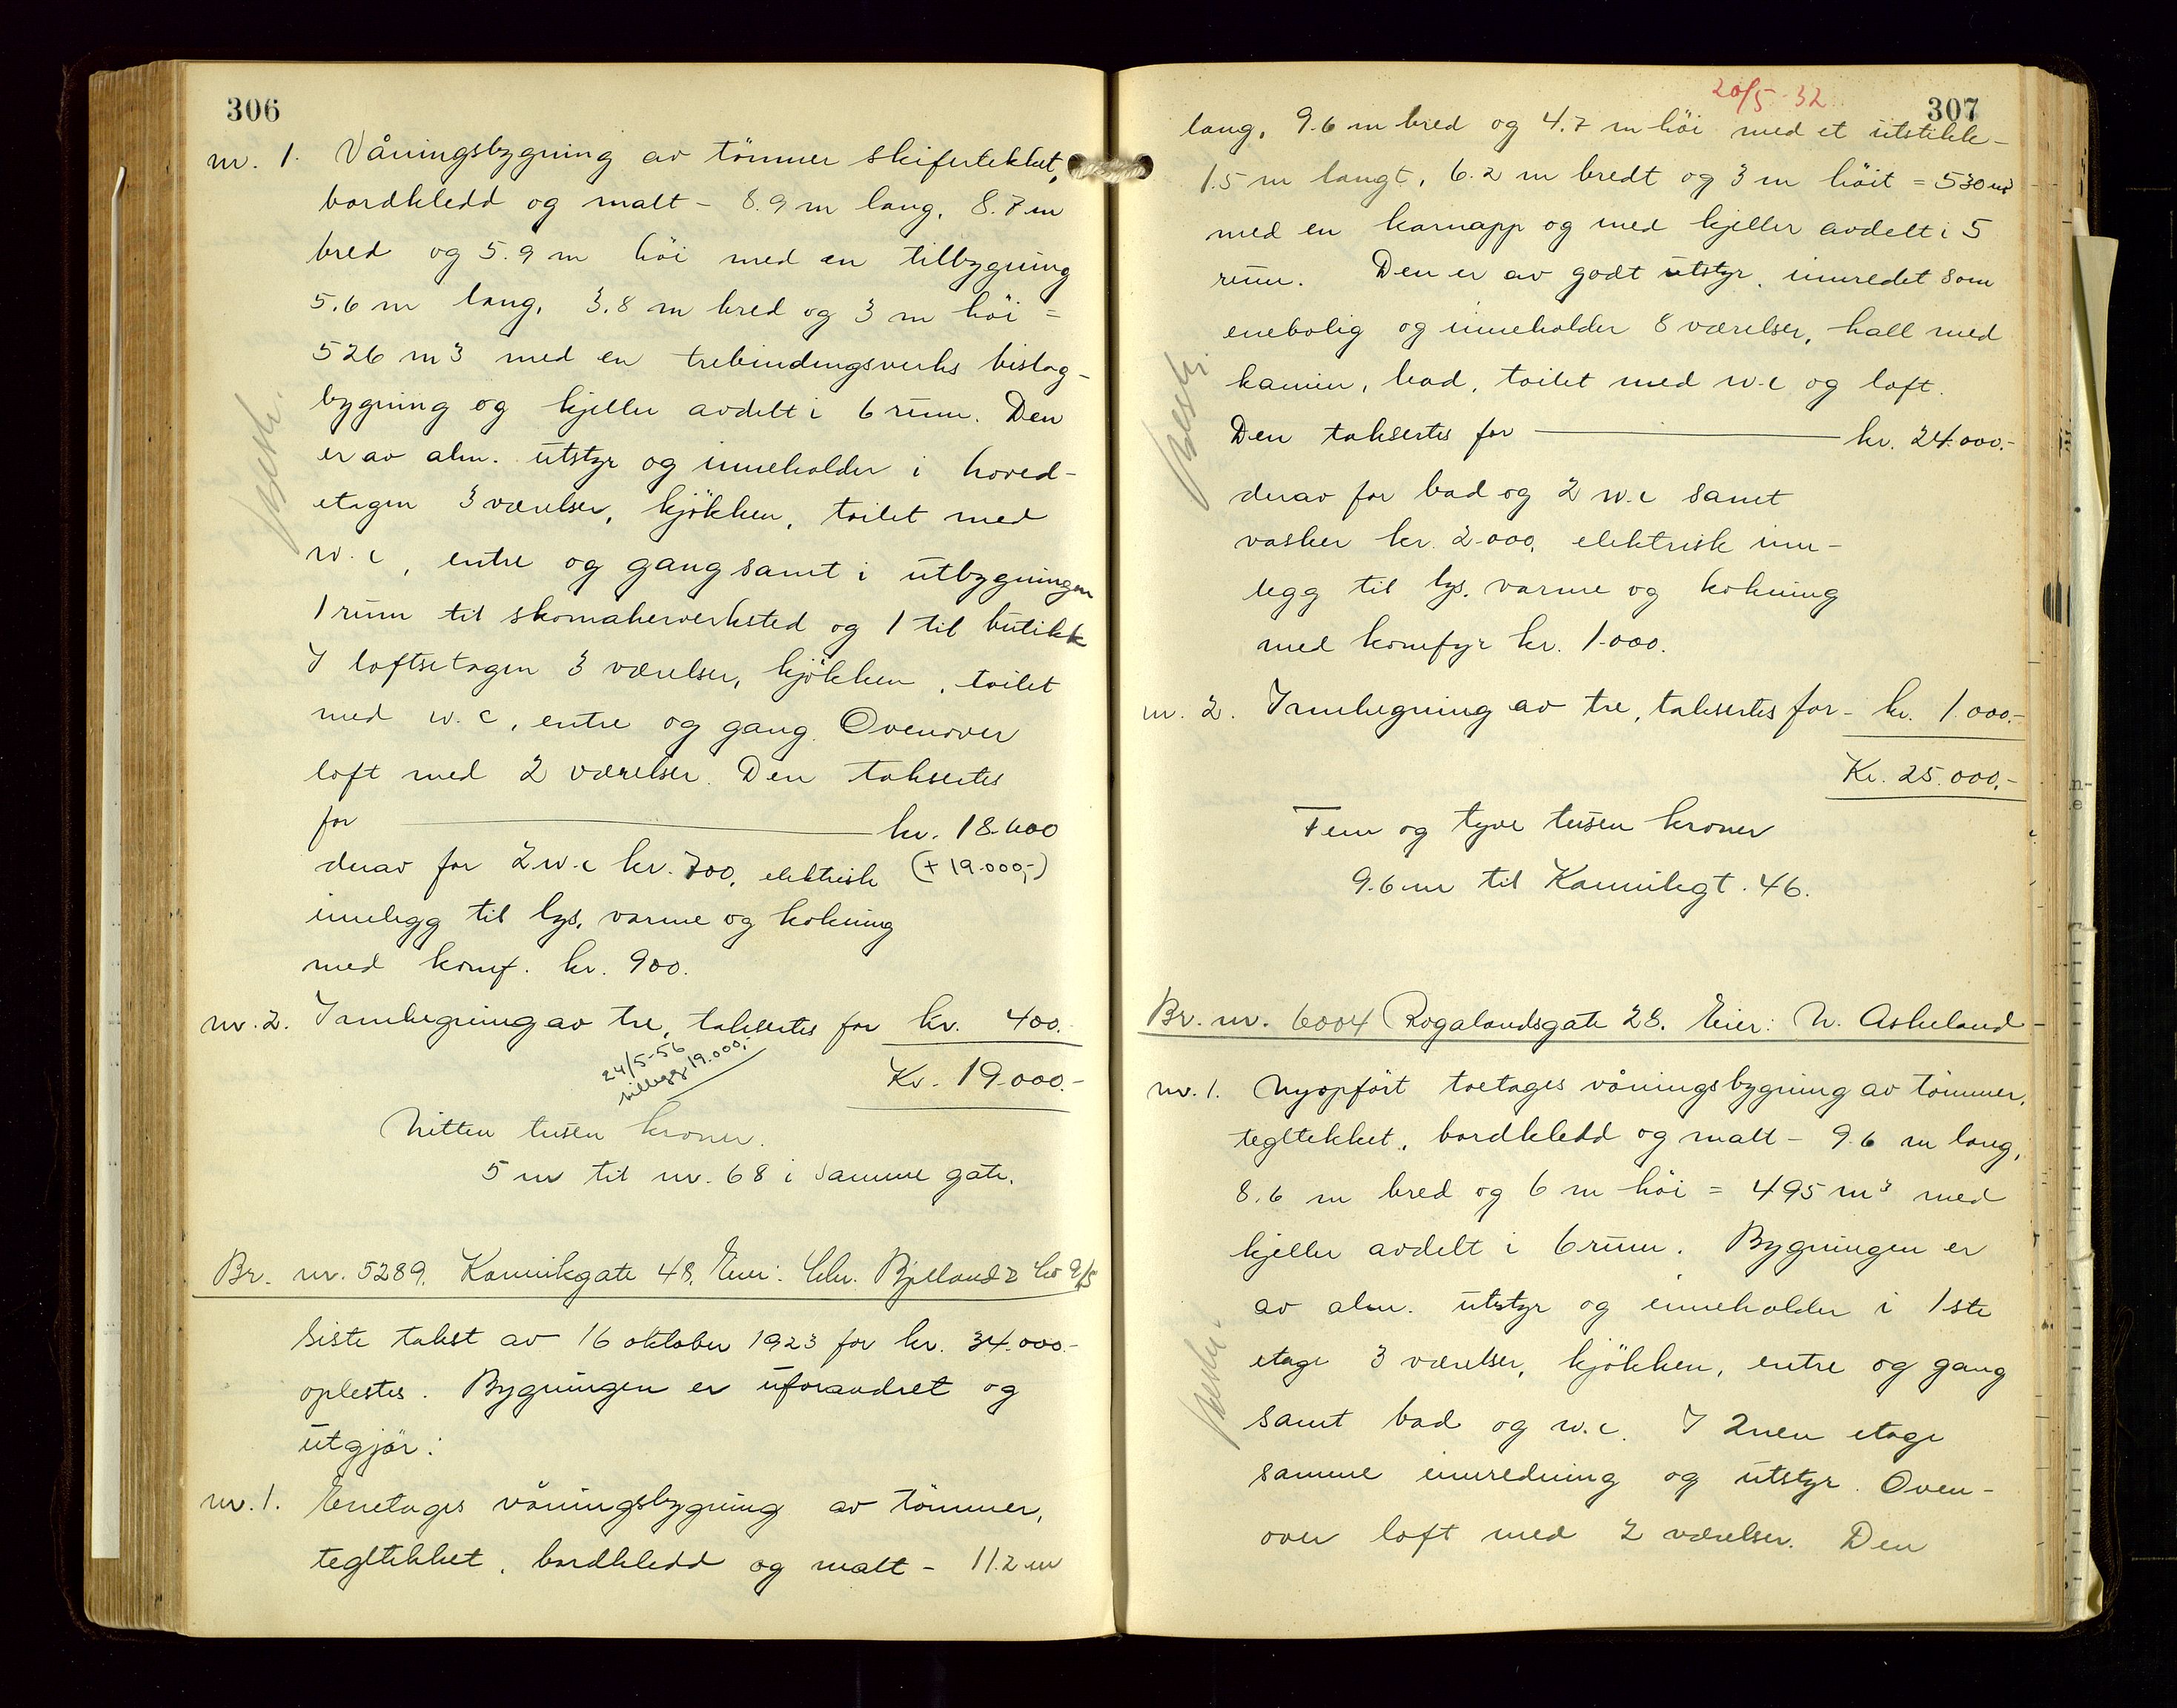 306
nr. 1. Våningsbygning av tömmer skifertekket,
bordkledd og malt - 8.9 m lang, 8.7 m
bred og 5.9 m höi med en tilbygning
5.6 m lang, 3.8 m bred og 3 m höi =
526 m3 med en trebindingsverks bislag-
bygning og kjeller avdelt i 6 rum. Den
er av alm. utstyr og inneholder i hoved-
etagen 3 værelser, kjökken, toilet med
w.c, entre og gang samt i utbygningen
1 rum til skomakerverksted og 1 til butikk
I loftsetagen 3 værelser, kjökken, toilet
med w.c, entre og gang. Ovenover
loft med 2 værelser. Den taksertes
for kr. 18.600
derav for 2 w.c kr. 700, elektrisk (+ 19.000,-)
innlegg til lys, varme og kokning
med komf. kr. 900.
nr. 2. Innhegning av tre, taksertes for kr. 400.-
24/5-56
tillegg 19.000,-
Kr. 19.000.-
Nitten tusen kroner.
5 m til nr. 68 i samme gate.
Br. nr. 5289. Kannikgate 48. Eier: Chr. Bjelland & Co 9/5
Siste takst av 16 oktober 1923 for kr. 34.000.-
oplestes. Bygningen er uforandret og
utgjör:
nr. 1. Enetages våningsbygning av tömmer,
tegltekket, bordkledd og malt - 11.2 m
20/5-32
307
lang, 9.6 m bred og 4.7 m höi med et utstikk-
1.5 m langt, 6.2 m bredt og 3 m höit = 530 m3
med en karnapp og med kjeller avdelt i 5
rum. Den er av godt utstyr, innredet som
enebolig og inneholder 8 værelser, hall med
kamin, bad, toilet med w.c og loft.
Den taksertes for kr. 24.000.-
derav for bad og 2 w.c samt
vasker kr. 2.000, elektrisk inn-
legg til lys, varme og kokning
med komfyr kr. 1.000.
nr. 2. Innhegning av tre, taksertes for - kr. 1.000.-
Kr. 25.000,-
Fem og tyve tusen kroner
9.6 m til Kannikgt. 46.
Br. nr. 6004 Rogalandsgate 28. Eier: N. Askeland -
nr. 1. Nyopfört toetages våningsbygning av tömmer,
tegltekket, bordkledd og malt - 9.6 m lang,
8.6 m bred og 6 m höi = 495 m3 med
kjeller avdelt i 6 rum. Bygningen er
av alm. utstyr og inneholder i 1ste
etage 3 værelser, kjökken, entre og gang
samt bad og w.c. I 2nen etage
samme innredning og utstyr. Oven-
over loft med 2 værelser. Den